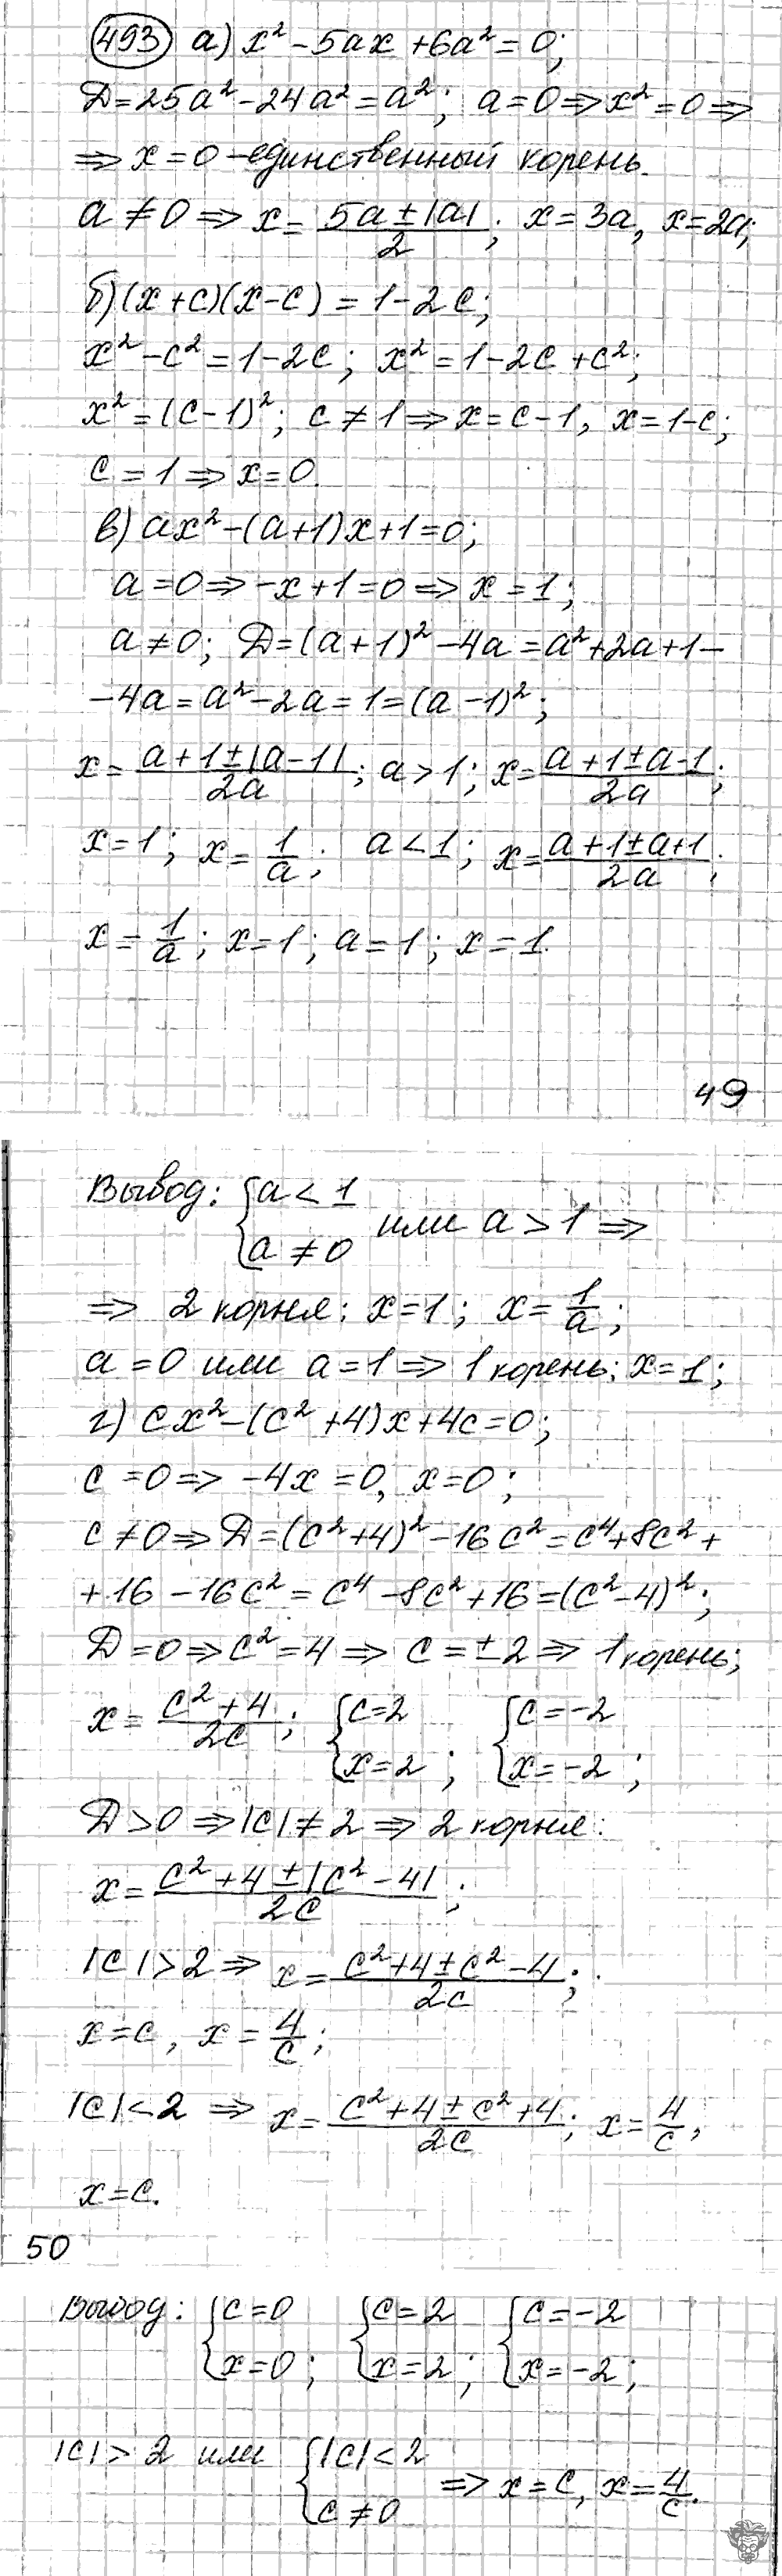 493 а) x² - 5ax + 6a² = 0;
Д = 25a² - 24a² = a²; a = 0 ⇒ x² = 0 ⇒
⇒ x = 0 - единственный корень.
a ≠ 0 ⇒ x = (5a ± |a|)/2; x = 3a, x = 2a;
б) (x + c)(x - c) = 1 - 2c;
x² - c² = 1 - 2c; x² = 1 - 2c + c²;
x² = (c - 1)²; c ≠ 1 ⇒ x = c - 1, x = 1 - c;
c = 1 ⇒ x = 0.
в) ax² - (a + 1)x + 1 = 0;
a = 0 ⇒ -x + 1 = 0 ⇒ x = 1;
a ≠ 0; Д = (a + 1)² - 4a = a² + 2a + 1 -
- 4a = a² - 2a = 1 = (a - 1)²;
x = (a + 1 ± |a - 1|)/2a; a > 1; x = (a + 1 ± a - 1)/2a;
x = 1; x = 1/a; a < 1; x = (a + 1 ± a + 1)/2a;
x = 1/a; x = 1; a = 1; x = 1.
49
Вывод: { a < 1 a ≠ 0 или a > 1 ⇒
⇒ 2 корня: x = 1; x = 1/a;
a = 0 или a = 1 ⇒ 1 корень: x = 1;
г) cx² - (c² + 4)x + 4c = 0;
c = 0 ⇒ -4x = 0, x = 0;
c ≠ 0 ⇒ Д = (c² + 4)² - 16c² = c⁴ + 8c² +
+ 16 - 16c² = c⁴ - 8c² + 16 = (c² - 4)²;
Д = 0 ⇒ c² = 4 ⇒ c = ±2 ⇒ 1 корень;
x = (c² + 4)/2c; { c = 2 x = 2; { c = -2 x = -2;
Д > 0 ⇒ |c| ≠ 2 ⇒ 2 корня:
x = (c² + 4 ± |c² - 4|)/2c;
|c| > 2 ⇒ x = (c² + 4 ± c² - 4)/2c;
x = c, x = 4/c;
|c| < 2 ⇒ x = (c² + 4 ± c² + 4)/2c; x = 4/c,
x = c.
50
Вывод: { c = 0 x = 0; { c = 2 x = 2; { c = -2 x = -2;
|c| > 2 или { |c| < 2 c ≠ 0 ⇒ x = c, x = 4/c.